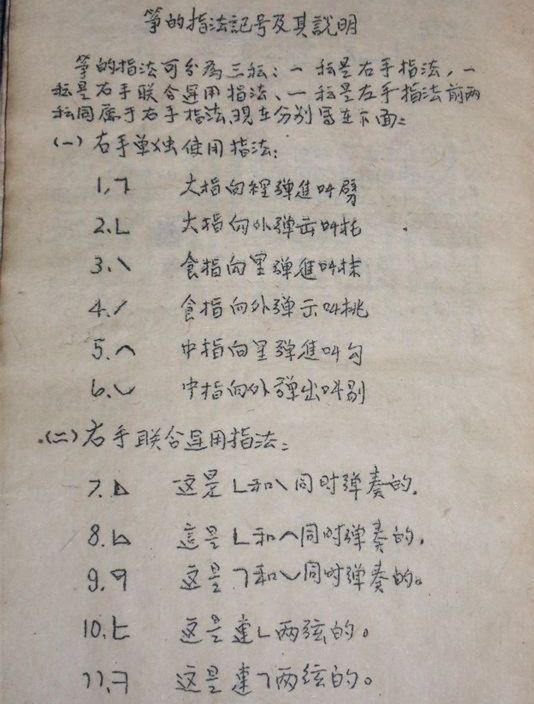 筝的指法記号及其說明
筝的指法可分為三种：一种是右手指法，一
种是右手联合运用指法、一种是左手指法前两
种同属于右手指法，现在分别写在下面：
(一)右手单独使用指法：
1, ㇕ 大指向裡弹進叫劈
2. ㇄ 大指向外弹出叫托
3. ㇔ 食指向里弹進叫抹
4. ㇒ 食指向外弹出叫挑
5. ㇏ 中指向里弹進叫勾
6. ◡ 中指向外弹出叫剔
(二)右手联合运用指法：
7. 这是㇄和㇔同时弹奏的.
8. 這是㇄和へ同时弹奏的,
9. 这是㇕和◡同时弹奏的。
10. 这是連㇄两弦的。
11. 这是連㇕两弦的。